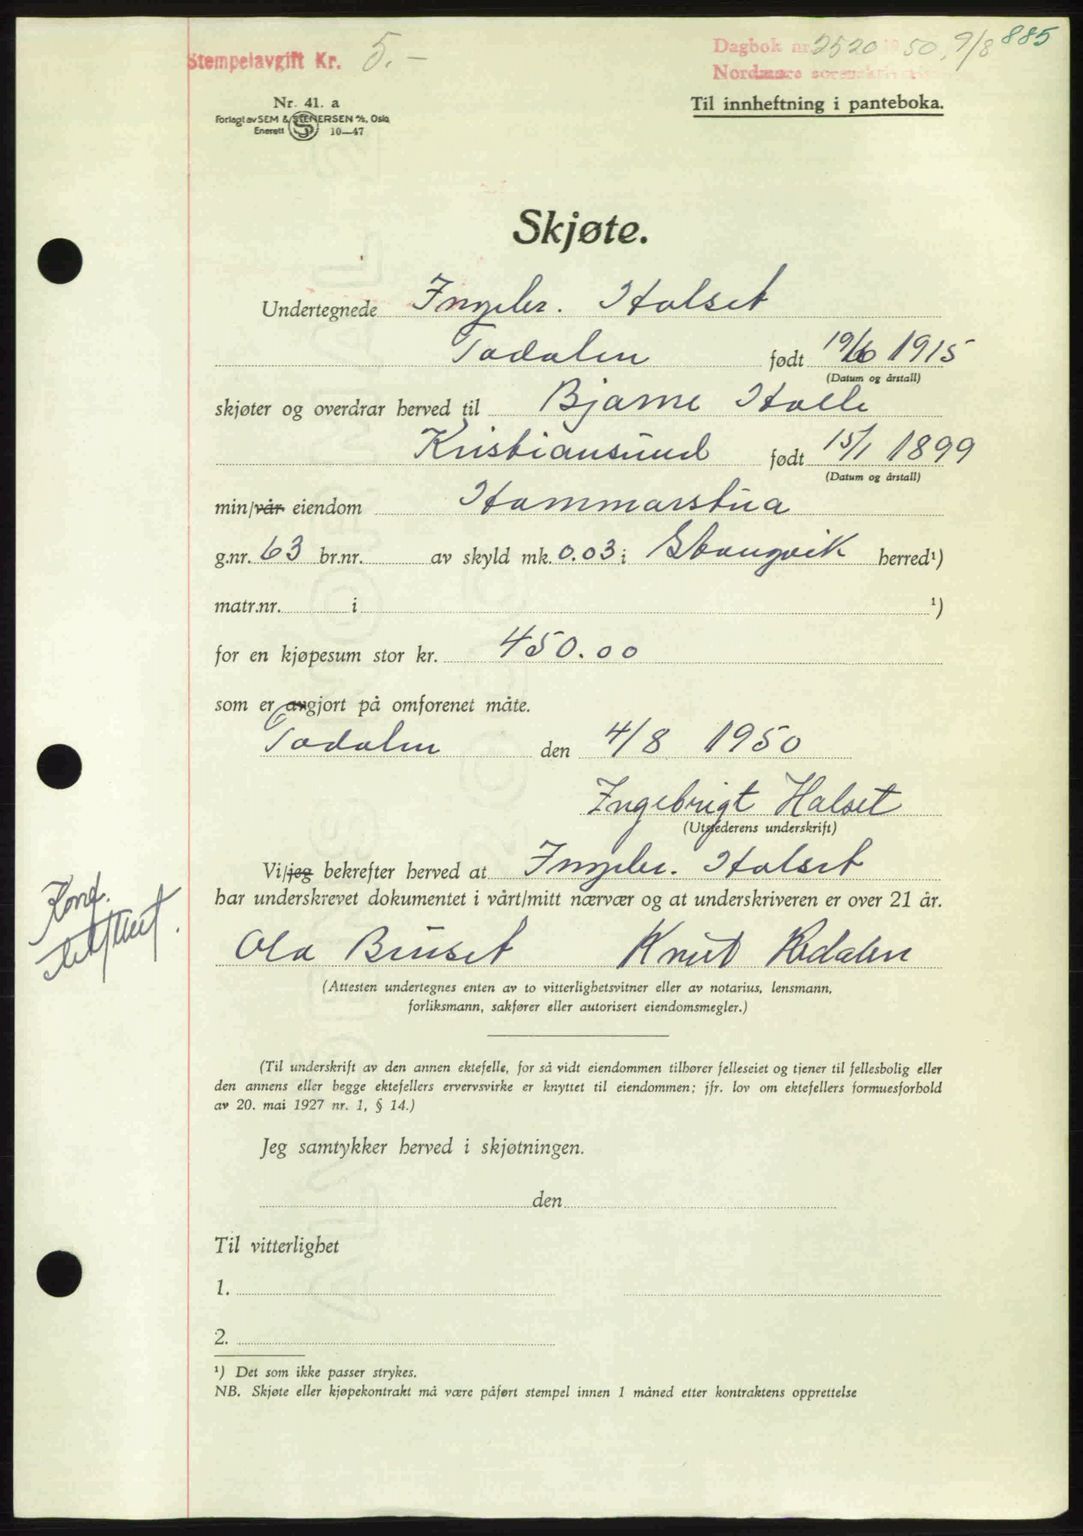 Stempelavgift Kr. 5.-
Dagbok nr. 2520 1950, 9/8 885
Nordmøre sorenskriverembete
Nr. 41. a
Forlagt av SEM & STENERSEN A/S, Oslo
Enerett S 10—47
Til innheftning i panteboka.
Skjøte.
Undertegnede Ingebr. Halset
Todalen født 19/6 1915
(Datum og årstall)
skjøter og overdrar herved til Bjarne Halle
Kristiansund født 15/1 1899
(Datum og årstall)
min/vår eiendom Hammarstua
g.nr. 63 br.nr. av skyld mk. 0.03 i Stangvik herred¹)
matr.nr. i ¹)
for en kjøpesum stor kr. 450.00
som er avgjort på omforenet måte.
Todalen den 4/8 1950
Ingebrigt Halset
(Utstederens underskrift)
Vi/jeg bekrefter herved at Ingebr. Halset
har underskrevet dokumentet i vårt/mitt nærvær og at underskriveren er over 21 år.
Konf.
Ola Bruset Knut Redalen
(Attesten undertegnes enten av to vitterlighetsvitner eller av notarius, lensmann,
forliksmann, sakfører eller autorisert eiendomsmegler.)
(Til underskrift av den annen ektefelle, for så vidt eiendommen tilhører felleseiet og tjener til fellesbolig eller
den annens eller begge ektefellers ervervsvirke er knyttet til eiendommen; jfr. lov om ektefellers formuesforhold
av 20. mai 1927 nr. 1, § 14.)
Jeg samtykker herved i skjøtningen.
den
Til vitterlighet
1.
2.
¹) Det som ikke passer strykes.
NB. Skjøte eller kjøpekontrakt må være påført stempel innen 1 måned etter kontraktens opprettelse